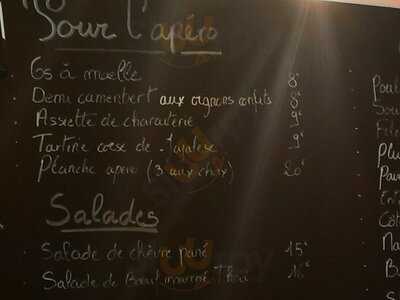 Pour l'apéro
Os à moelle 8€
Demi camembert aux oignons confits 8€
Assiette de charcuterie 9€
Tartine corse de 9€
Planche apero (3 aux choix) 20€
Salades
Salade de chèvre pané 15€
Salade de Boeuf mariné Thai 16€